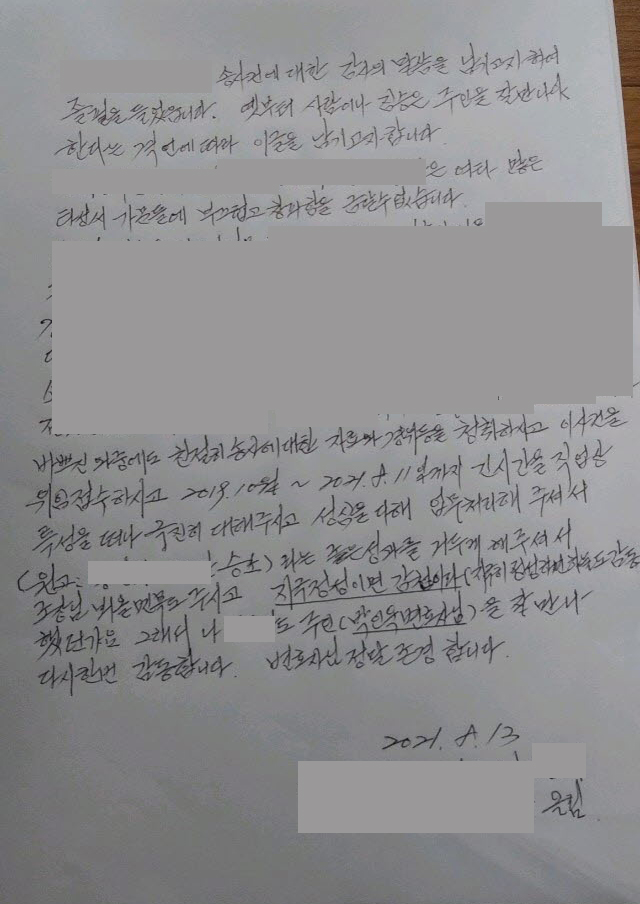 송사건에 대한 감사의 말씀을 남기고자 하여
즐필을 들었습니다. 옛부터 사람이나 짐승은 주인을 잘만나야
한다는 격언에 따라 이글을 남기고자합니다.
은 여타 많은
타성서 가문들에 부끄럽고 창피함을 금할수 없습니다.
바쁘신 와중에도 친절히 송사에대한 자료와 경위등을 청취하시고 이사건을
위임접수하시고 2019.10월 ~ 2021.8.11일까지 긴시간을 직업상
특성을 떠나 극진히 대해주시고 성심을 다해 업무처리해 주셔서
(원고: 승소)라는 좋은성과를 거두게 해주셔서
조상님 뵈올면목도 주시고 지극정성이면 감천이라(지극히 정성하면 하늘도 감동
했단가요 그래서 나 도 주인(박인욱변호사님)을 잘 만나
다시한번 감동합니다. 변호사님 정말 존경 합니다.
2021. 8. 13
올림